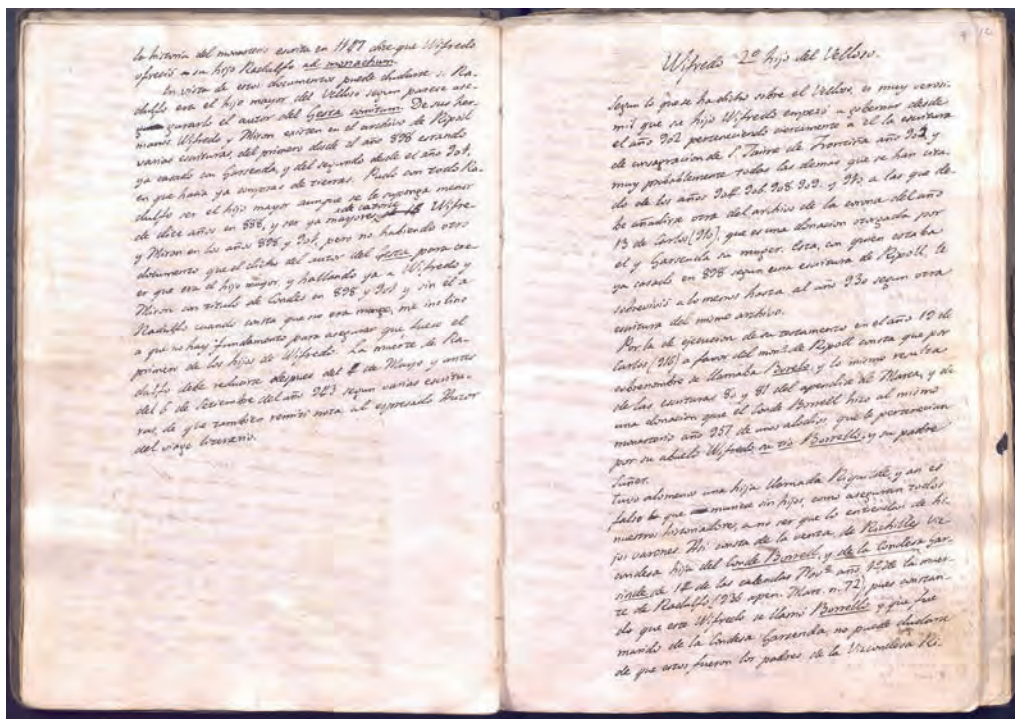 la historia del monasterio escrita en 1147 dice que Wifredo
ofreció a su hijo Radulfo ad monachum.
En vista de estos documentos puede dudarse si Ra-
dulfo era el hijo mayor del Velloso segun parece ase-
gurarlo el autor del Gesta comitum. De sus her-
manos Wifredo y Miron existen en el archivo de Ripoll
varias escrituras, del primero desde el año 898 estando
ya casado con Garsenda, y del segundo desde el año 901,
en que hacia ya compras de tierras. Pudo con todo Ra-
dulfo ser el hijo mayor aunque se le suponga menor
de diez años en 888, y ser ya mayores de catorce Wifre-
y Miron en los años 898 y 901, pero no habiendo otro
documento que el dicho del autor del Gesta para cre-
er que era el hijo mayor, y hallando ya a Wifredo y
Miron con titulo de Condes en 898 y 901 y sin él a
Radulfo cuando consta que no era monge, me inclino
a que no hay fundamento para asegurar que fuese el
primero de los hijos de Wifredo. La muerte de Ra-
dulfo debe reducirse despues del de Mayo y antes
del 6 de Setiembre del año 943 segun varias escritu-
ras, de que tambien remití nota al expresado Autor
del viage literario.
Wifredo 2º hijo del Velloso.
Segun lo que se ha dicho sobre el Velloso, es muy verosi-
mil que su hijo Wifredo empezó a gobernar desde
el año 902 perteneciendo ciertamente a él la escritura
de consagracion de S. Jaime de Frontiña año 902 y
muy probablemente todas las demas que se han cita-
do de los años 904. 906. 908. 909. y 910 a las que de-
be añadirse otra del archivo de la corona del año
13 de Carlos (910), que es una donacion otorgada por
el y Garsenda su muger. Esta, con quien estaba
ya casado en 898 segun una escritura de Ripoll, le
sobrevivió a lo menos hasta al año 930 segun otra
escritura del mismo archivo.
Por la de ejecucion de su testamento en el año 19 de
Carlos (916) a favor del monº de Ripoll consta que por
sobrenombre se llamaba Borello, y lo mismo resulta
de las escrituras 80 y 81 del apendice de Marca, y de
una donacion que el Conde Borrell hizo al mismo
monasterio año 957 de unos alodios que le pertenecian
por su abuelo Wifredo, su tio Borrello, y su padre
Suñer.
Tuvo alomenos una hija llamada Riquilde, y asi es
falso que muriese sin hijos, como aseguran todos
nuestros historiadores, a no ser que lo entiendan de hi-
jos varones. Asi consta de la venta, de Richilles Viz-
condesa hija del Conde Borrell, y de la Condesa Gar-
sinde de 14 de las calendas Novº año 1º de la muer-
te de Radulfo (936 apen. Marc. n. 72), pues constan-
do que este Wifredo se llamó Borrello y que fue
marido de la Condesa Garsenda, no puede dudarse
de que estos fueron los padres de la Vizcondesa Ri-